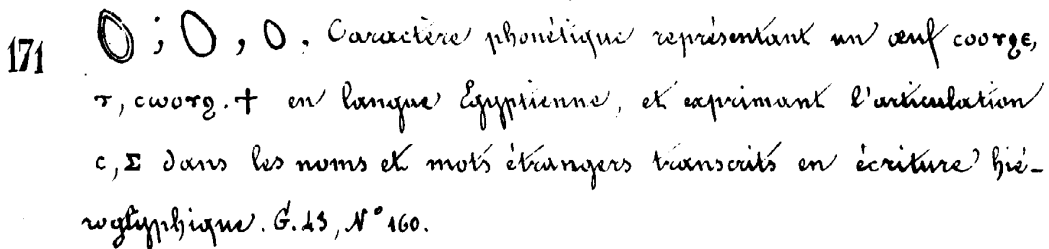 171 ; , . Caractère phonétique représentant un œuf ⲥⲟⲟⲩϩⲉ,
ⲧ, ⲥⲱⲟⲩϩ.ϯ en langue Egyptienne, et exprimant l'articulation
ⲥ, Σ dans les noms et mots étrangers transcrits en écriture hié-
roglyphique. G. 43, N° 160.